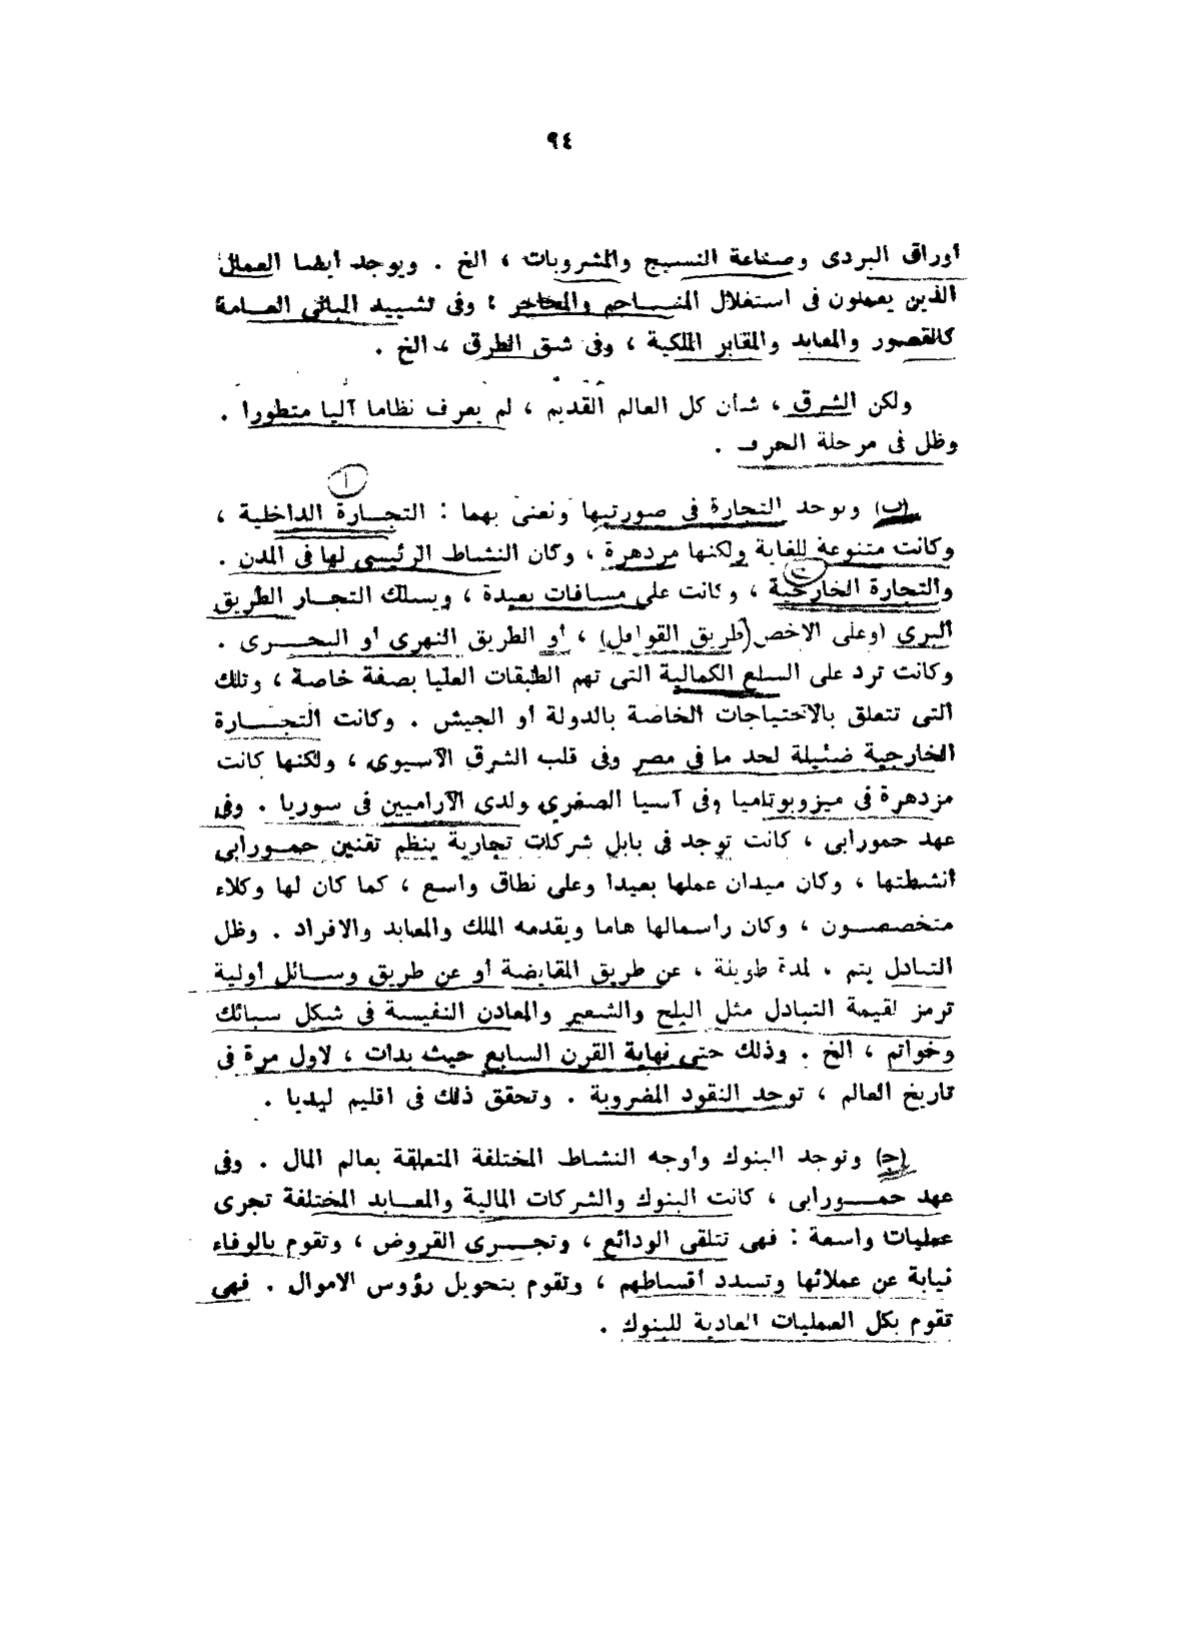 ٩٤
أوراق البردى وصناعة النسيج والمشروبات ، الخ . ويوجد أيضا العمال
الذين يعملون فى استغلال المناجم والمحاجر ؛ وفى تشييد المبانى العامة
كالقصور والمعابد والمقابر الملكية ، وفى شق الطرق ، الخ .
ولكن الشرق ، شأن كل العالم القديم ، لم يعرف نظاما آليا متطورا .
وظل فى مرحلة الحرف .
١
(ب) وتوجد التجارة فى صورتيها ونعنى بهما : التجارة الداخلية ،
وكانت متنوعة للغاية ولكنها مزدهرة ، وكان النشاط الرئيسى لها فى المدن .
٢
والتجارة الخارجية ، وكانت على مسافات بعيدة ، ويسلك التجار الطريق
البرى (وعلى الاخص طريق القوافل) ، أو الطريق النهرى أو البحرى .
وكانت ترد على السلع الكمالية التى تهم الطبقات العليا بصفة خاصة ، وتلك
التى تتعلق بالاحتياجات الخاصة بالدولة أو الجيش . وكانت التجارة
الخارجية ضئيلة لحد ما فى مصر وفى قلب الشرق الآسيوى ، ولكنها كانت
مزدهرة فى ميزوبوتاميا وفى آسيا الصغرى ولدى الآراميين فى سوريا . وفى
عهد حمورابى ، كانت توجد فى بابل شركات تجارية ينظم تقنين حمورابى
أنشطتها ، وكان ميدان عملها بعيدا وعلى نطاق واسع ، كما كان لها وكلاء
متخصصون ، وكان رأسمالها هاما ويقدمه الملك والمعابد والافراد . وظل
التبادل يتم ، لمدة طويلة ، عن طريق المقايضة أو عن طريق وسائل أولية
ترمز لقيمة التبادل مثل البلح والشعير والمعادن النفيسة فى شكل سبائك
وخواتم ، الخ . وذلك حتى نهاية القرن السابع حيث بدأت ، لاول مرة فى
تاريخ العالم ، توجد النقود المضروبة . وتحقق ذلك فى اقليم ليديا .
(ج) وتوجد البنوك وأوجه النشاط المختلفة المتعلقة بعالم المال . وفى
عهد حمورابى ، كانت البنوك والشركات المالية والمعابد المختلفة تجرى
عمليات واسعة : فهى تتلقى الودائع ، وتجرى القروض ، وتقوم بالوفاء
نيابة عن عملائها وتسدد أقساطهم ، وتقوم بتحويل رؤوس الاموال . فهى
تقوم بكل العمليات العادية للبنوك .